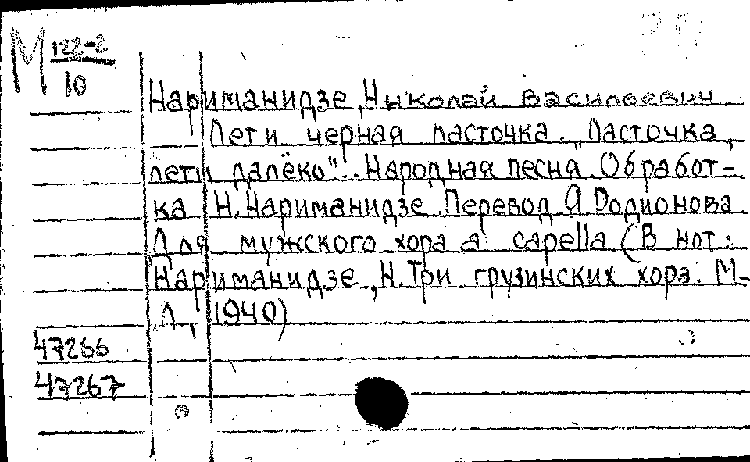 М 122-2
10
Нариманидзе, Николай Васильевич
Лети черная ласточка. „Ласточка,
лети далёко". Народная песня. Обработ-
ка Н. Нариманидзе. Перевод Я. Родионова
Для мужского хора a capella (В нот:
Нариманидзе, Н. Три грузинских хора. М-
Л, 1940)
47266
47267